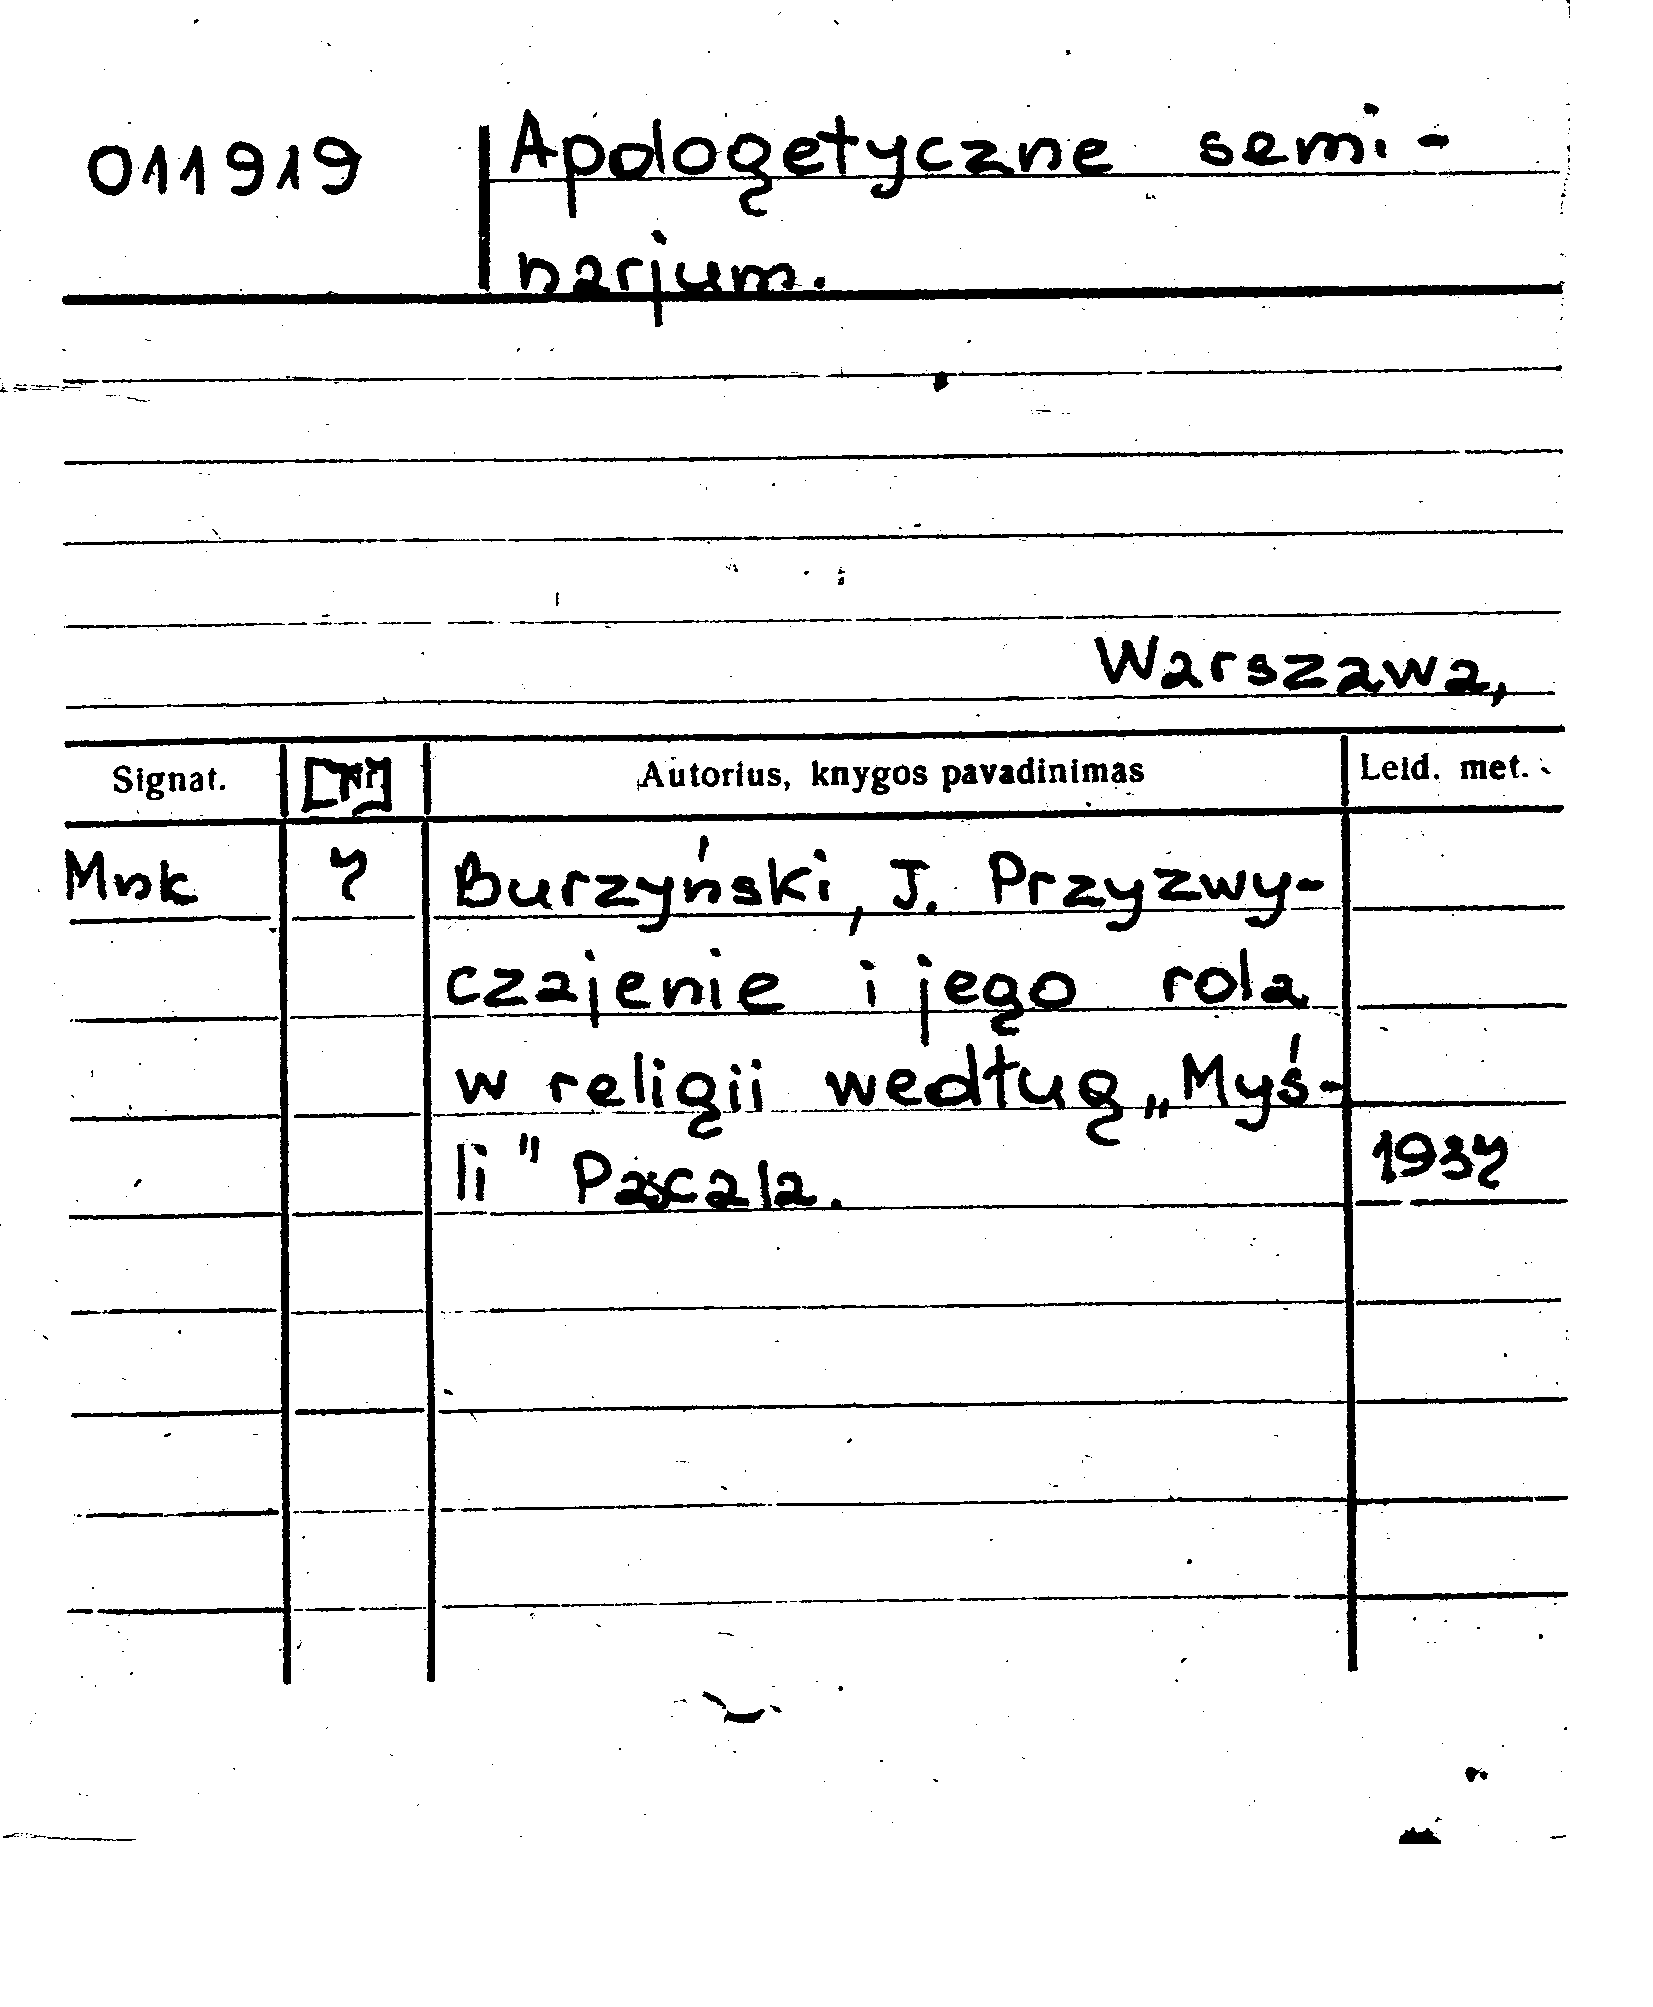 011919 Apologetyczne semi-
narjum.
Warszawa,
Signat. [Nr] Autorius, knygos pavadinimas Leid. met.
Mnk 7 Burzyński, J. Przyzwy-
czajenie i jego rola
w religii według „Myś-
li" Pascala. 1937